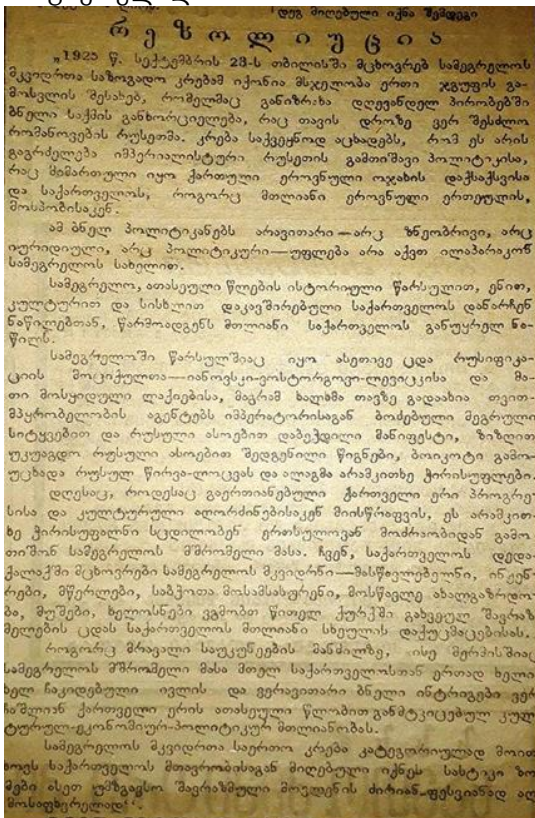 დეგ მიღებული იქნა შემდეგი
რ ე ზ ო ლ ი უ ც ი ა
„1925 წ. სექტემბრის 23-ს თბილისში მცხოვრებ სამეგრელოს
მკვიდრთა საზოგადო კრებამ იქონია მსჯელობა ერთი ჯგუფის გა-
მოსვლის შესახებ, რომელმაც განიზრახა დღევანდელ პირობებში
ბნელი საქმის განხორციელება, რაც თავის დროზე ვერ შესძლო
რომანოვების რუსეთმა. კრება საქვეყნოდ აცხადებს, რომ ეს არის
გაგრძელება იმპერიალისტური რუსეთის გამთიშავი პოლიტიკისა,
რაც მიმართული იყო ქართული ეროვნული ოჯახის დაქსაქსვისა
და საქართველოს, როგორც მთლიანი ეროვნული ერთეულის,
მოსპობისაკენ.
ამ ბნელ პოლიტიკანებს არავითარი—არც ზნეობრივი, არც
იურიდიული, არც პოლიტიკური—უფლება არა აქვთ ილაპარაკონ
სამეგრელოს სახელით.
სამეგრელო, ათასეული წლების ისტორიული წარსულით, ენით,
კულტურით და სისხლით დაკავშირებული საქართველოს დანარჩენ
ნაწილებთან, წარმოადგენს მთლიანი საქართველოს განუყრელ ნა-
წილს.
სამეგრელოში წარსულშიაც იყო ასეთივე ცდა რუსიფიკა-
ციის მოციქულთა—იანოვსკი-ვოსტორგოვი-ლევიცკისა და მა-
თი მოსყიდული ლაქიებისა, მაგრამ ხალხმა თავზე გადაახია თვით-
მპყრობელობის აგენტებს იმპერატორისაგან ბოძებული მეგრული
სიტყვებით და რუსული ასოებით დაბეჭდილი მანიფესტი, ზიზღით
უკუაგდო რუსული ასოებით შედგენილი წიგნები, ბოიკოტი გამო-
უცხადა რუსულ წირვა-ლოცვას და ალაგმა არამკითხე ჭირისუფლები.
დღესაც, როდესაც გაერთიანებული ქართველი ერი პროგრე-
სისა და კულტურული აღორძინებისაკენ მიისწრაფვის, ეს არამკით-
ხე ჭირისუფალნი სცდილობენ ერთსულოვან მოძრაობიდან გამო
თიშონ სამეგრელოს მშრომელი მასა. ჩვენ, საქართველოს დედა-
ქალაქში მცხოვრები სამეგრელოს მკვიდრნი—მასწავლებელნი, ინჟენ-
რები, მწერლები, საბჭოთა მოსამსახურენი, მოსწავლე ახალგაზრდო-
ბა, მუშები, ხელოსნები ვგმობთ წითელ ქურქში გახვეულ შავრაზ
მელების ცდას საქართველოს მთლიანი სხეულის დაქუცმაცებისას.
როგორც მრავალი საუკუნეების მანძილზე, ისე მერმისშიაც
სამეგრელოს მშრომელი მასა მთელ საქართველოსთან ერთად ხელი
ხელ ჩაკიდებული ივლის და ვერავითარი ბნელი ინტრიგები ვერ
ჩაშლიან ქართველი ერის ათასეული წლობით განმტკიცებულ კულ
ტურულ-ეკონომიურ-პოლიტიკურ მთლიანობას.
სამეგრელოს მკვიდრთა საერთო კრება კატეგორიულად მოით
ხოვს საქართველოს მთავრობისაგან მიღებული იქნეს სასტიკი ზო
მები ასეთ უმზგავსო შავრაზმული მოვლენის ძირიან-ფესვიანად აღ
მოსაფხვრელად“.